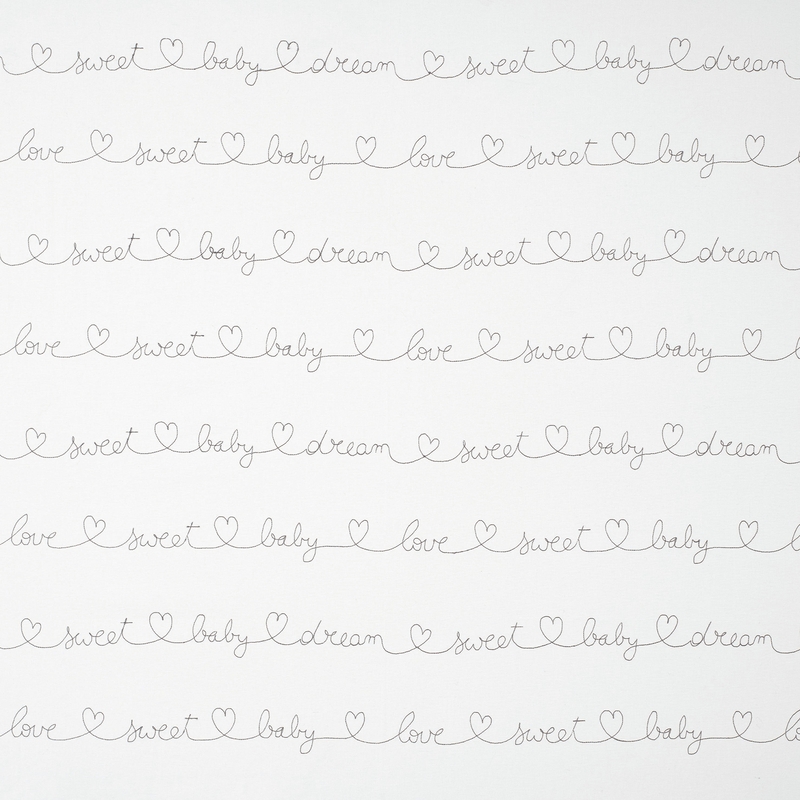 sweet baby dream sweet baby dream
love sweet baby love sweet baby
sweet baby dream sweet baby dream
love sweet baby love sweet baby
sweet baby dream sweet baby dream
love sweet baby love sweet baby
sweet baby dream sweet baby dream
love sweet baby love sweet baby